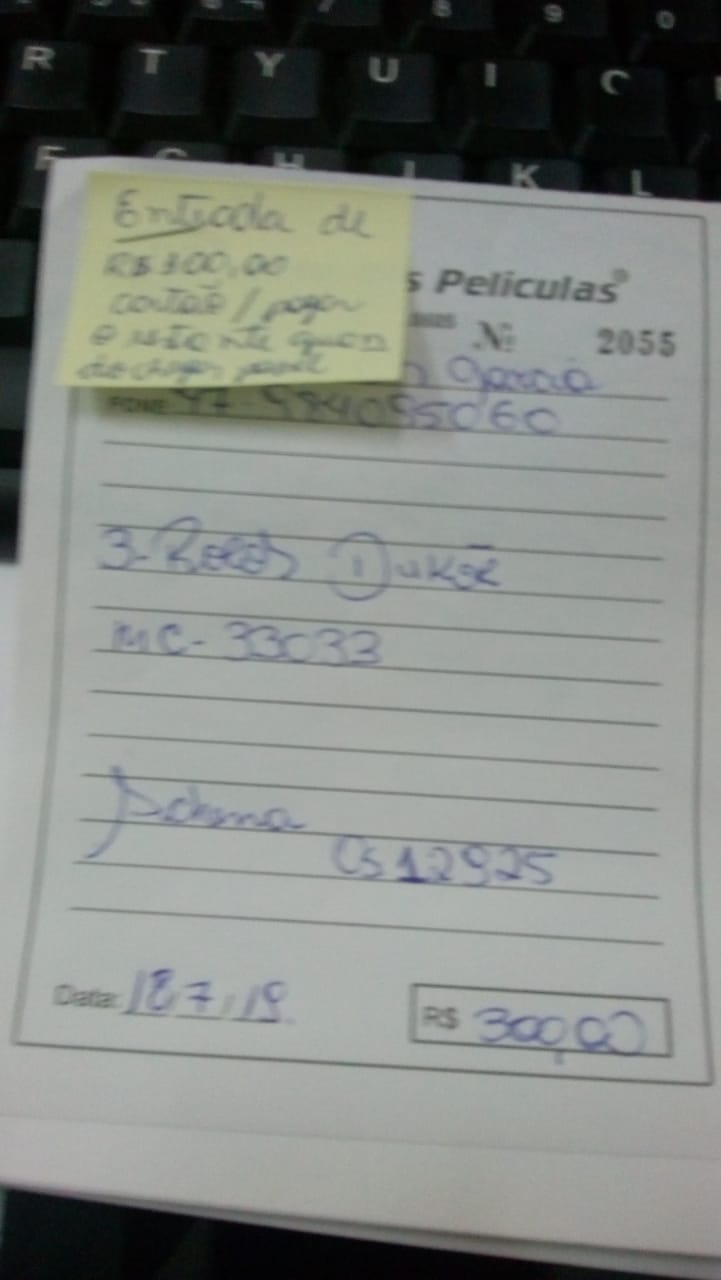 R T Y U I
K L
Entrada de
R$ 300,00
cartão / pagar
o restante quan
do chegar
s Películas®
Nº 2055
Garcia
FONE: 47-984095060
3-Rolos
MC-33033
Os 12925
Data: 18,7,19
R$ 300,00